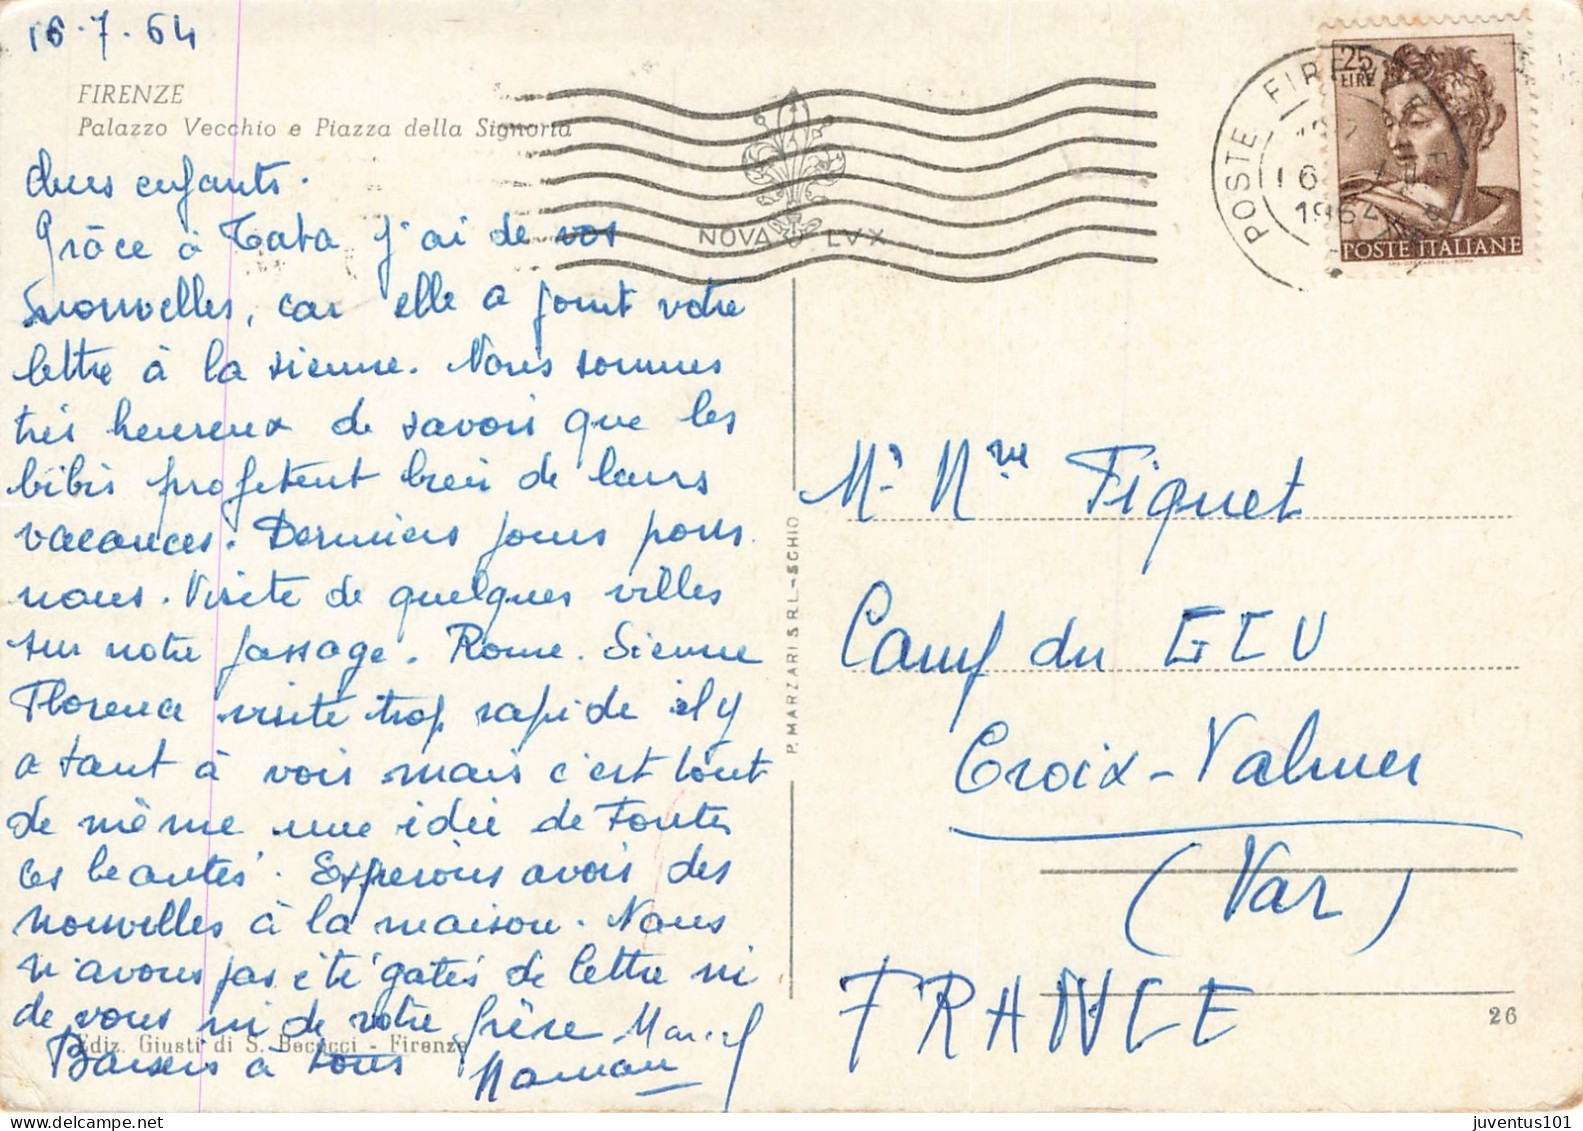 16.7.64
FIRENZE
Palazzo Vecchio e Piazza della Signoria
Chers enfants.
Grâce à Tata j'ai de vos
nouvelles, car elle a joint votre
lettre à la sienne. Nous sommes
très heureux de savoir que les
bibis profitent bien de leurs
vacances. Derniers jours pour
nous. Visite de quelques villes
sur notre passage. Rome. Sienne
Florence visite trop rapide il y
a tant à voir mais c'est tout
de même une idée de toutes
ces beautés. Espérons avoir des
nouvelles à la maison. Nous
n'avons pas été gatés de lettre ni
de vous ni de votre frère Marcel
Baisers à tous Maman
Ediz. Giusti di S. Becocci - Firenze
P. MARZARI S.R.L.-SCHIO
NOVA LVX
POSTE FIRENZE
1964
25
LIRE
POSTE ITALIANE
Mr Mme Fiquet
Camp du GCU
Croix-Valmer
(Var)
FRANCE
26
juventus101